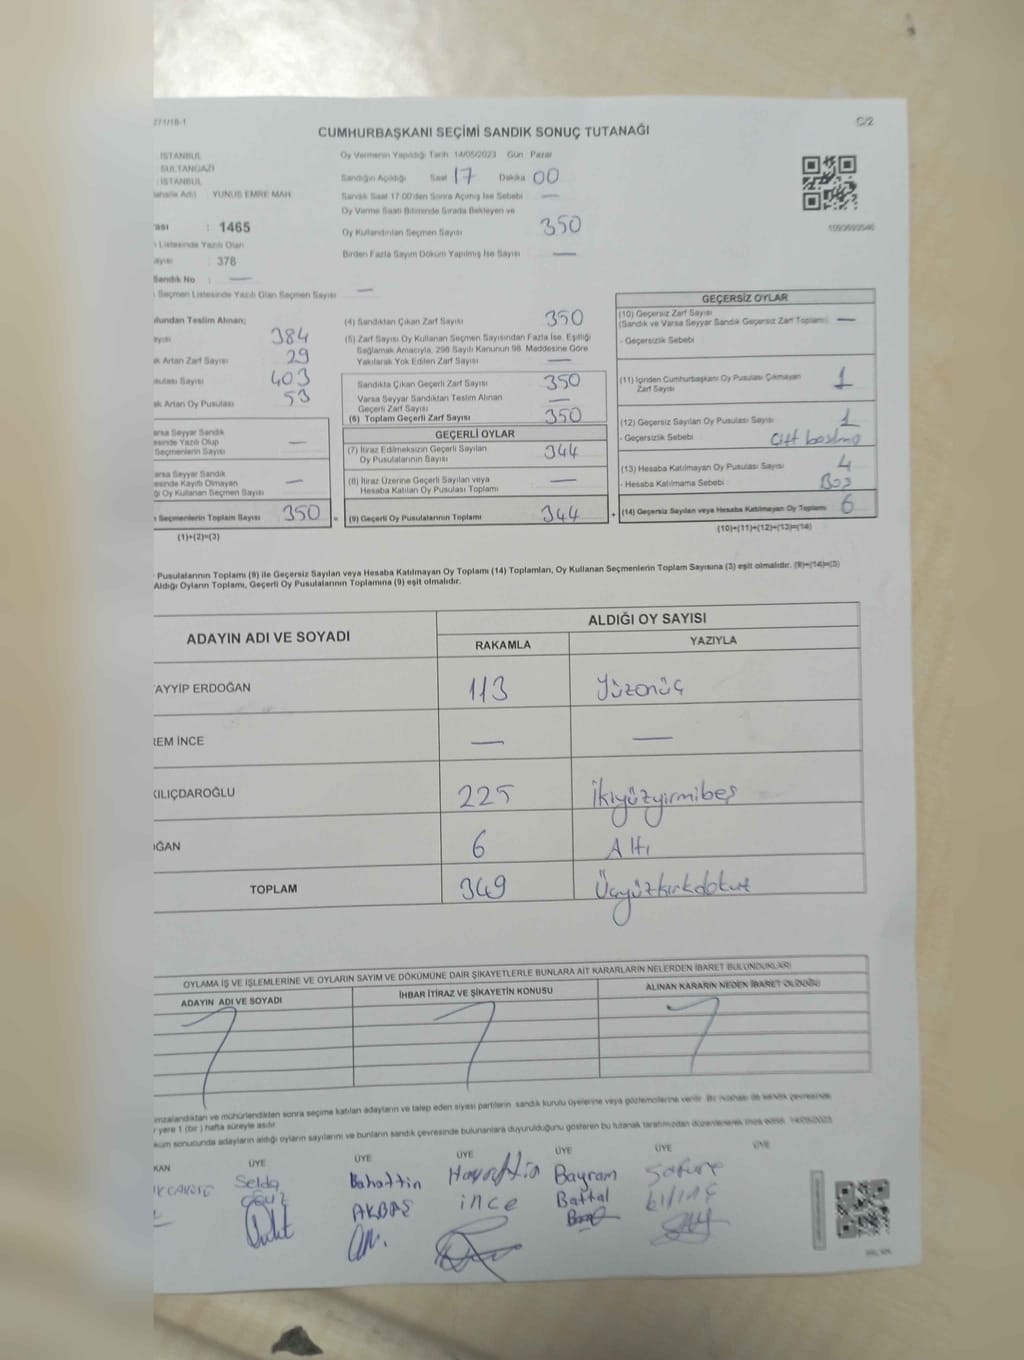 271/18-1
C/2
CUMHURBAŞKANI SEÇİMİ SANDIK SONUÇ TUTANAĞI
İSTANBUL
SULTANGAZİ
İSTANBUL
YUNUS EMRE MAH.
1465
Listesinde Yazılı Olan
: 378
Sandık No : —
Seçmen Listesinde Yazılı Olan Seçmen Sayısı —
Oy Vermenin Yapıldığı Tarih 14/05/2023 Gün Pazar
Sandığın Açıldığı Saat 17 Dakika 00
Sandık Saat 17:00'den Sonra Açılmış İse Sebebi —
Oy Verme Saati Bitiminde Sırada Bekleyen ve
Oy Kullandırılan Seçmen Sayısı 350
Birden Fazla Sayım Döküm Yapılmış İse Sayısı —
Teslim Alınan;
384
Artan Zarf Sayısı 29
Sayısı 403
Artan Oy Pusulası 53
Seyyar Sandık
Yazılı Olup
Seçmenlerin Sayısı —
Seyyar Sandık
Kayıtlı Olmayan
Oy Kullanan Seçmen Sayısı —
Seçmenlerin Toplam Sayısı 350 =
(1)+(2)=(3)
(4) Sandıktan Çıkan Zarf Sayısı 350
(5) Zarf Sayısı Oy Kullanan Seçmen Sayısından Fazla İse, Eşitliği
Sağlamak Amacıyla, 298 Sayılı Kanunun 98. Maddesine Göre
Yakılarak Yok Edilen Zarf Sayısı —
Sandıkta Çıkan Geçerli Zarf Sayısı 350
Varsa Seyyar Sandıktan Teslim Alınan
Geçerli Zarf Sayısı —
(6) Toplam Geçerli Zarf Sayısı 350
GEÇERLİ OYLAR
(7) İtiraz Edilmeksizin Geçerli Sayılan
Oy Pusulalarının Sayısı 344
(8) İtiraz Üzerine Geçerli Sayılan veya
Hesaba Katılan Oy Pusulası Toplamı —
(9) Geçerli Oy Pusulalarının Toplamı 344 +
GEÇERSİZ OYLAR
(10) Geçersiz Zarf Sayısı
(Sandık ve Varsa Seyyar Sandık Geçersiz Zarf Toplamı) —
- Geçersizlik Sebebi
(11) İçinden Cumhurbaşkanı Oy Pusulası Çıkmayan
Zarf Sayısı 1
(12) Geçersiz Sayılan Oy Pusulası Sayısı 1
- Geçersizlik Sebebi Çift basılmış
(13) Hesaba Katılmayan Oy Pusulası Sayısı 4
- Hesaba Katılmama Sebebi Boş
(14) Geçersiz Sayılan veya Hesaba Katılmayan Oy Toplamı 6
(10)+(11)+(12)+(13)=(14)
Pusulalarının Toplamı (9) ile Geçersiz Sayılan veya Hesaba Katılmayan Oy Toplamı (14) Toplamları, Oy Kullanan Seçmenlerin Toplam Sayısına (3) eşit olmalıdır. (9)+(14)=(3)
Aldığı Oyların Toplamı, Geçerli Oy Pusulalarının Toplamına (9) eşit olmalıdır.
ADAYIN ADI VE SOYADI
ALDIĞI OY SAYISI
RAKAMLA YAZIYLA
AYYİP ERDOĞAN 113 Yüzonüç
REM İNCE — —
KILIÇDAROĞLU 225 İkiyüzyirmibeş
OĞAN 6 Altı
TOPLAM 349 Üçyüzkırkdokuz
OYLAMA İŞ VE İŞLEMLERİNE VE OYLARIN SAYIM VE DÖKÜMÜNE DAİR ŞİKAYETLERLE BUNLARA AİT KARARLARIN NELERDEN İBARET BULUNDUKLARI
ADAYIN ADI VE SOYADI İHBAR İTİRAZ VE ŞİKAYETİN KONUSU ALINAN KARARIN NEDEN İBARET OLDUĞU
imzalandıktan ve mühürlendikten sonra seçime katılan adayların ve talep eden siyasi partilerin sandık kurulu üyelerine veya gözlemcilerine verilir. Bir nüshası da sandık çevresinde
yere 1 (bir) hafta süreyle asılır.
sonucunda adayların aldığı oyların sayılarını ve bunların sandık çevresinde bulunanlara duyurulduğunu gösteren bu tutanak tarafımızdan düzenlenerek imza edildi. 14/05/2023
KAN ÜYE ÜYE ÜYE ÜYE ÜYE ÜYE
Selda Bahattin Hayrettin Bayram
AKBAŞ ince Battal kılınç